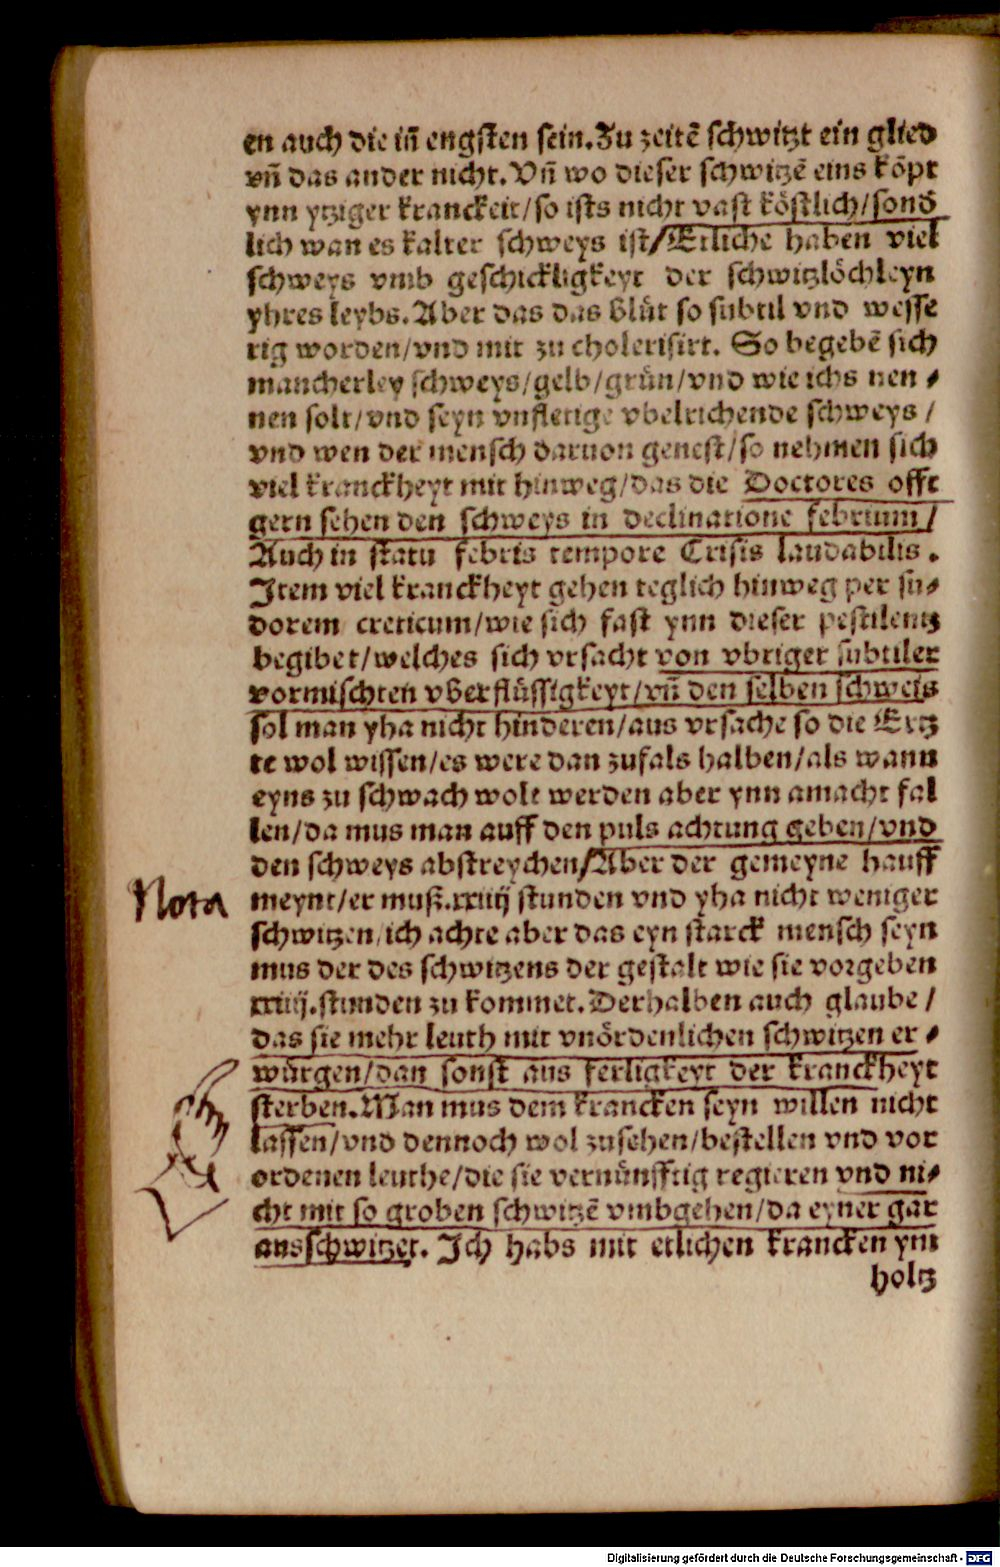 en auch die iñ engsten sein. Zu zeitẽ schwitzt ein glied
vñ das ander nicht. Vñ wo dieser schwitzẽ eins kõpt
ynn ytziger kranckeit/so ists nicht vast köstlich/sond̃
lich wan es kalter schweys ist/Etliche haben viel
schweys vmb geschickligkeyt der schwitzlöchleyn
yhres leybs. Aber das das blůt so subtil vnd wesse
rig worden/vnd mit zu cholerisirt. So begebẽ sich
mancherley schweys/gelb/grün/vnd wie ichs nen ⸗
nen solt/vnd seyn vnfletige vbelrichende schweys /
vnd wen der mensch daruon genest/so nehmen sich
viel kranckheyt mit hinweg/das die Doctores offt
gern sehen den schweys in declinatione febrium/
Auch in statu febris tempore Crisis laudabilis.
Item viel kranckheyt gehen teglich hinweg per su⸗
dorem creticum/wie sich fast ynn dieser pestilentz
begibet/welches sich vrsacht von vbriger subtiler
vormischten vberflüssigkeyt/vñ den selben schweis
sol man yha nicht hinderen/aus vrsache so die Ertz
te wol wissen/es were dan zufals halben/als wann
eyns zu schwach wolt werden aber ynn amacht fal
len/da mus man auff den puls achtung geben/vnd
den schweys abstreychen/Aber der gemeyne hauff
Nota
meynt/er muß.xxiiij stunden vnd yha nicht weniger
schwitzen/ich achte aber das eyn starck mensch seyn
mus der des schwitzens der gestalt wie sie vorgeben
xxiiij.stunden zu kommet. Derhalben auch glaube/
das sie mehr leuth mit vnördenlichen schwitzen er⸗
würgen/dan sonst aus ferligkeyt der kranckheyt
sterben. Man mus dem krancken seyn willen nicht
lassen/vnd dennoch wol zusehen/bestellen vnd vor
ordenen leuthe/die sie vernünfftig regieren vnd ni⸗
cht mit so groben schwitzẽ vmbgehen/da eyner gar
ausschwitzet. Ich habs mit etlichen krancken ym
holtz
Digitalisierung gefördert durch die Deutsche Forschungsgemeinschaft - DFG